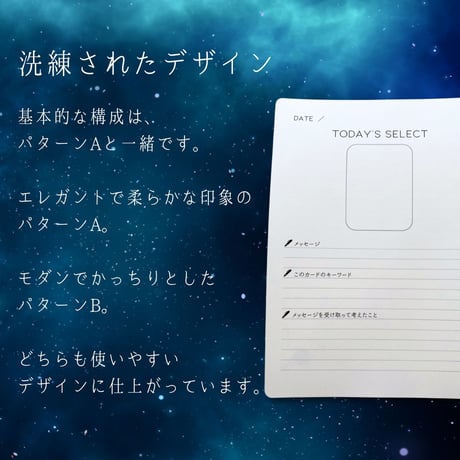 洗練されたデザイン
基本的な構成は、
パターンAと一緒です。
エレガントで柔らかな印象の
パターンA。
モダンでかっちりとした
パターンB。
どちらも使いやすい
デザインに仕上がっています。
DATE /
TODAY'S SELECT
メッセージ
このカードのキーワード
メッセージを受け取って考えたこと